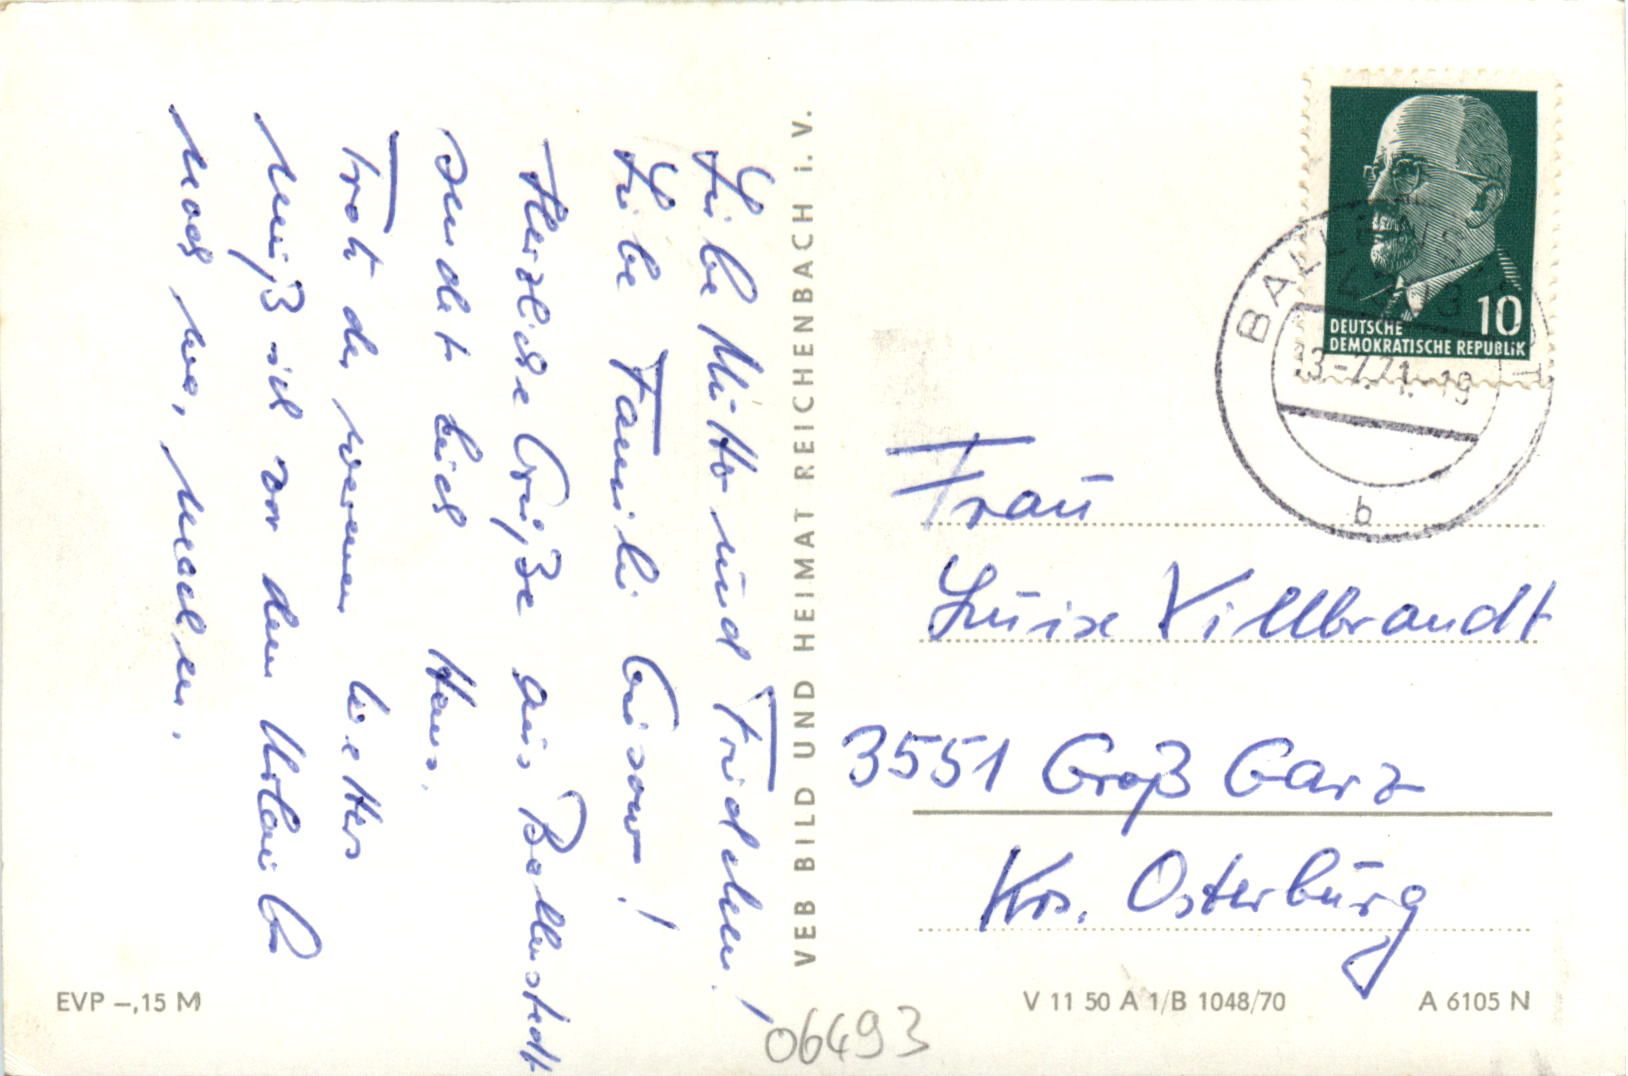 Liebe Mutto und Friedchen!
Liebe Familie Güsow!
Herzliche Grüße aus Ballenstedt
sendet Euch Hans.
Trotz des warmen Wetters
muß ich vor dem Urlaub
noch was, machen.
VEB BILD UND HEIMAT REICHENBACH i. V.
EVP –,15 M
10
DEUTSCHE
DEMOKRATISCHE REPUBLIK
13.-7.71.-19
b
Frau
Luise Villbrandt
3551 Groß Garz
Krs. Osterburg
V 11 50 A 1/B 1048/70
A 6105 N
06493